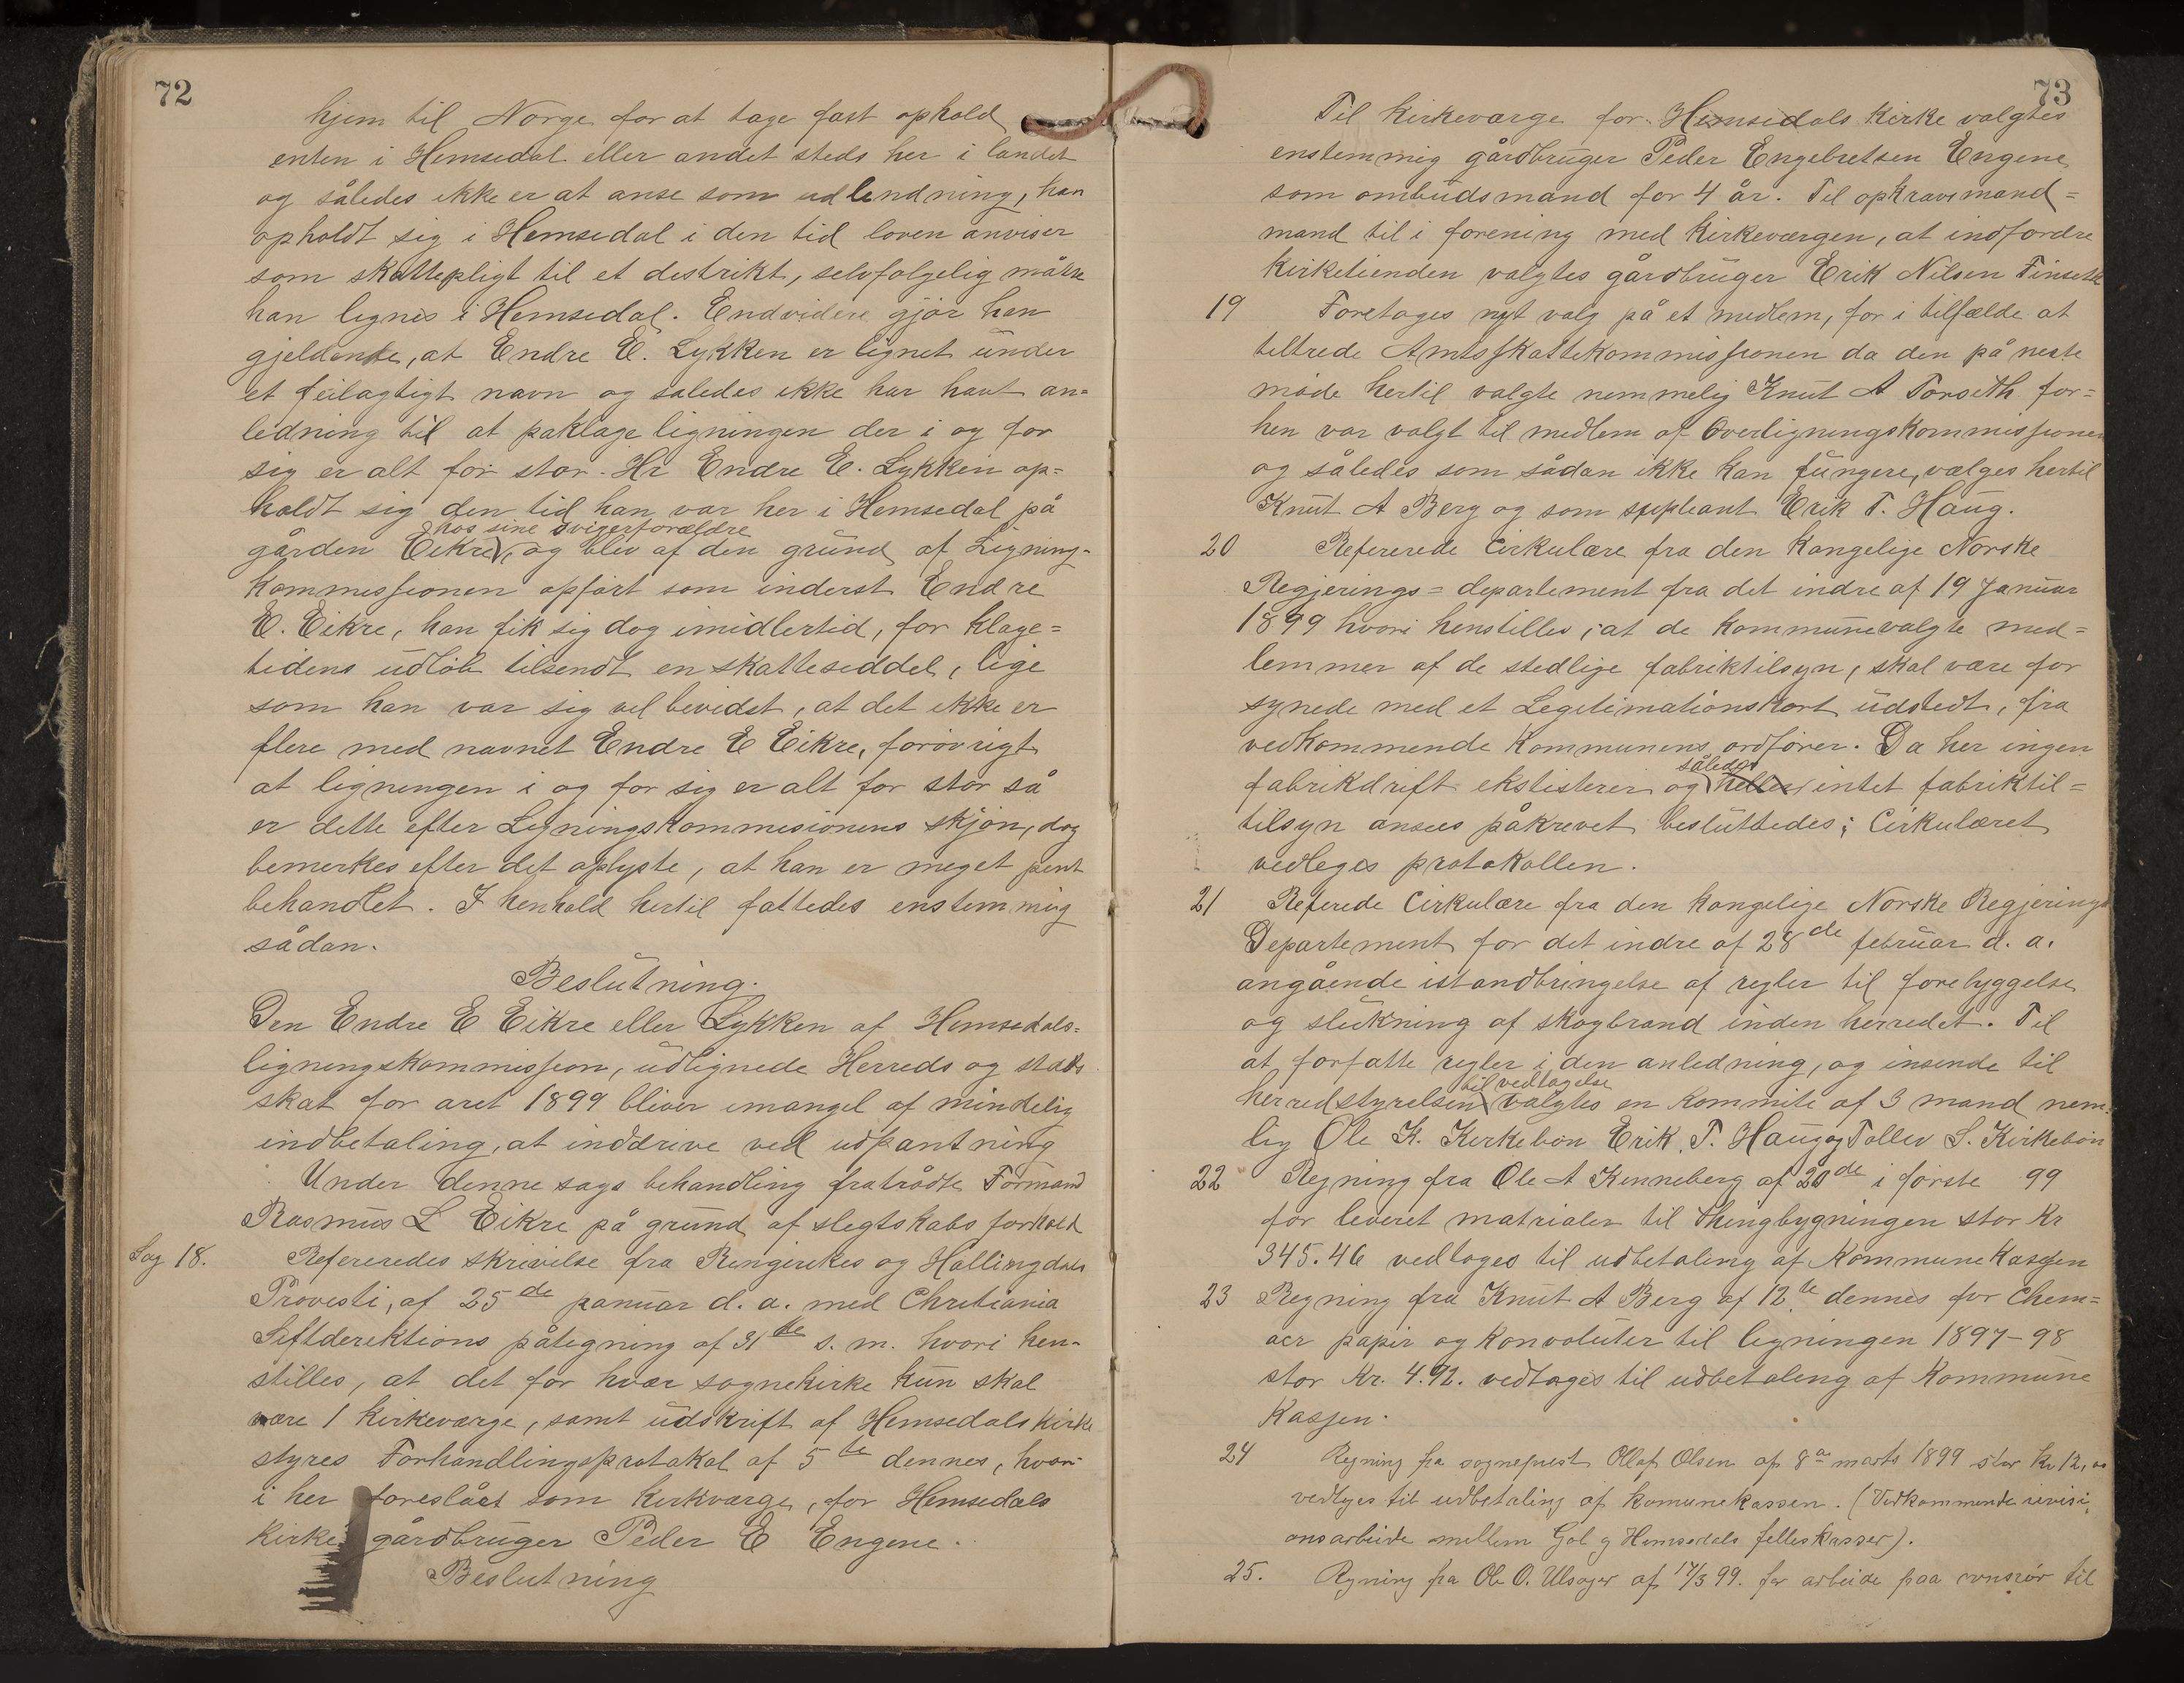 72
hjem til Norge for at tage fast ophold
enten i Hemsedal eller andet steds her i landet
og således ikke er at anse som udlendning, han
opholdt sig i Hemsedal i den tid loven anviser
som skattepligt til et destrikt, selvfølgelig måtte
han lignes i Hemsedal. Endvidere gjør han
gjeldende, at Endre E. Lykken er lignet under
et feilagtigt navn og saledes ikke har havt an=
ledning til at paklage ligningen der i og for
sig er alt for stor. Hr Endre E. Lykken op=
holdt sig den tid han var her i Hemsedal på
hos sine svigerforældre
gården Eikre, og blev af den grund af Ligning-
kommissionen opført som inderst Endre
E. Eikre, han fik sig dog imidlertid, før klage=
tidens udløb tilsendt en skatteseddel, lige
som han var sig vel bevidst, at det ikke er
flere med navnet Endre E Eikre, forøvrigt
at ligningen i og for sig er alt for stor så
er dette efter Ligningskommesionens skjøn, dog
bemerkes efter det oplyste, at han er meget pent
behandlet. I henhold hertil fattedes enstemmig
sådan.
Beslutning.
Den Endre E Eikre eller Lykken af Hemsedals=
ligningskommission, udlignede Herreds og stats
skat for aret 1899 bliver imangel af mindelig
indbetaling, at inddrive ved udpantning
Under denne sags behandling fratrådte Formand
Rasmus L Eikre på grund af slegtskabs forhold
Sag 18. Refereredes skrivelse fra Ringerikes og Hallingdals
Provesti, af 25de januar d. a. med Christiania
Stiftderektions påtegning af 31te s. m. hvori hen-
stilles, at det for hver sognekirke kun skal
være 1 kirkeværge, samt udskrift af Hemsedals kirke
styres Forhandlingsprotokol af 5te dennes, hvor-
i her foreslået som kirkværge, for Hemsedals
kirke gårdbruger Peder E Engene.
Beslutning
73
Til kirkeværge for Hemsedals kirke valgtes
enstemmig gårdbruger Peder Engebretsen Engene
som ombudsmand for 4 år. Til opkravsmand=
mand til i forening med kirkeværgen, at indfordre
kirketienden valgtes gårdbruger Erik Nilsen Finseth
19 Foretages nyt valg på et medlem, for i tilfælde at
tiltrede Amtsskattekommissionen da den på neste
møde hertil valgte nemmelig Knut A Torseth for=
hen var valgt til medlem af Overligningskommissionen
og således som sådan ikke kan fungere, vælges hertil
Knut A Berg og som suppleant Erik T. Haug.
20 Refererede cirkulære fra den kongelige Norske
Regjerings=departement fra det indre af 19 Januar
1899 hvori henstilles, at de kommunevalgte med=
lemmer af de stedlige fabriktilsyn, skal være for
synede med et Legitimationskort udstedt, fra
vedkommende kommunens ordfører. Da her ingen
således
fabrikdrift ekstisterer og heller intet fabriktil=
tilsyn ansees påkrevet besluttedes; Cirkulæret
vedleges protokollen.
21 Referede Cirkulære fra den kongelige Norske Regjerings
Departement for det indre af 28de februar d. a.
angående istandbringelse af regler til forebyggelse
og slukning af skogbrand inden herredet. Til
at forfatte regler i den anledning, og insende til
til vedtagelse
herredstyrelsen valgtes en kommite af 3 mand nem-
lig Ole K. Kirkebøn Erik T. Haug og Tollev S. Kirkebøn
22 Regning fra Ole A Kenneberg af 20de i første 99
for leveret matrialer til thingbygningen stor kr
345.46 vedtages til udbetaling af Kommunekassen
23 Regning fra Knut A Berg af 12te dennes for Chem=
aer papir og konvoluter til ligningen 1897-98
stor kr. 4.92. vedtages til udbetaling af Kommune
kassen.
24 Regning fra sogneprest Ollaf Olsen af 8de marts 1899 stor kr 12,00
vedtages til udbetaling af komunekassen. (Vedkommende revisi
onsarbeide mellem Gol og Hemsedals felleskasser).
25. Regning fra Ole O. Ulsager af 17/3 99. for arbeide paa til